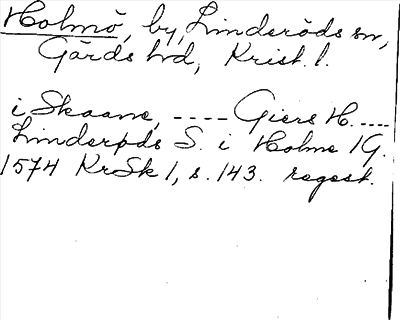 Holmö, by, Linderöds sn,
Gärds hd, Krist. l.
i Skaane, ---- Giers H. ----
Linderøds S. i Holme 1 G.
1574 KrSk 1, s. 143. regest.